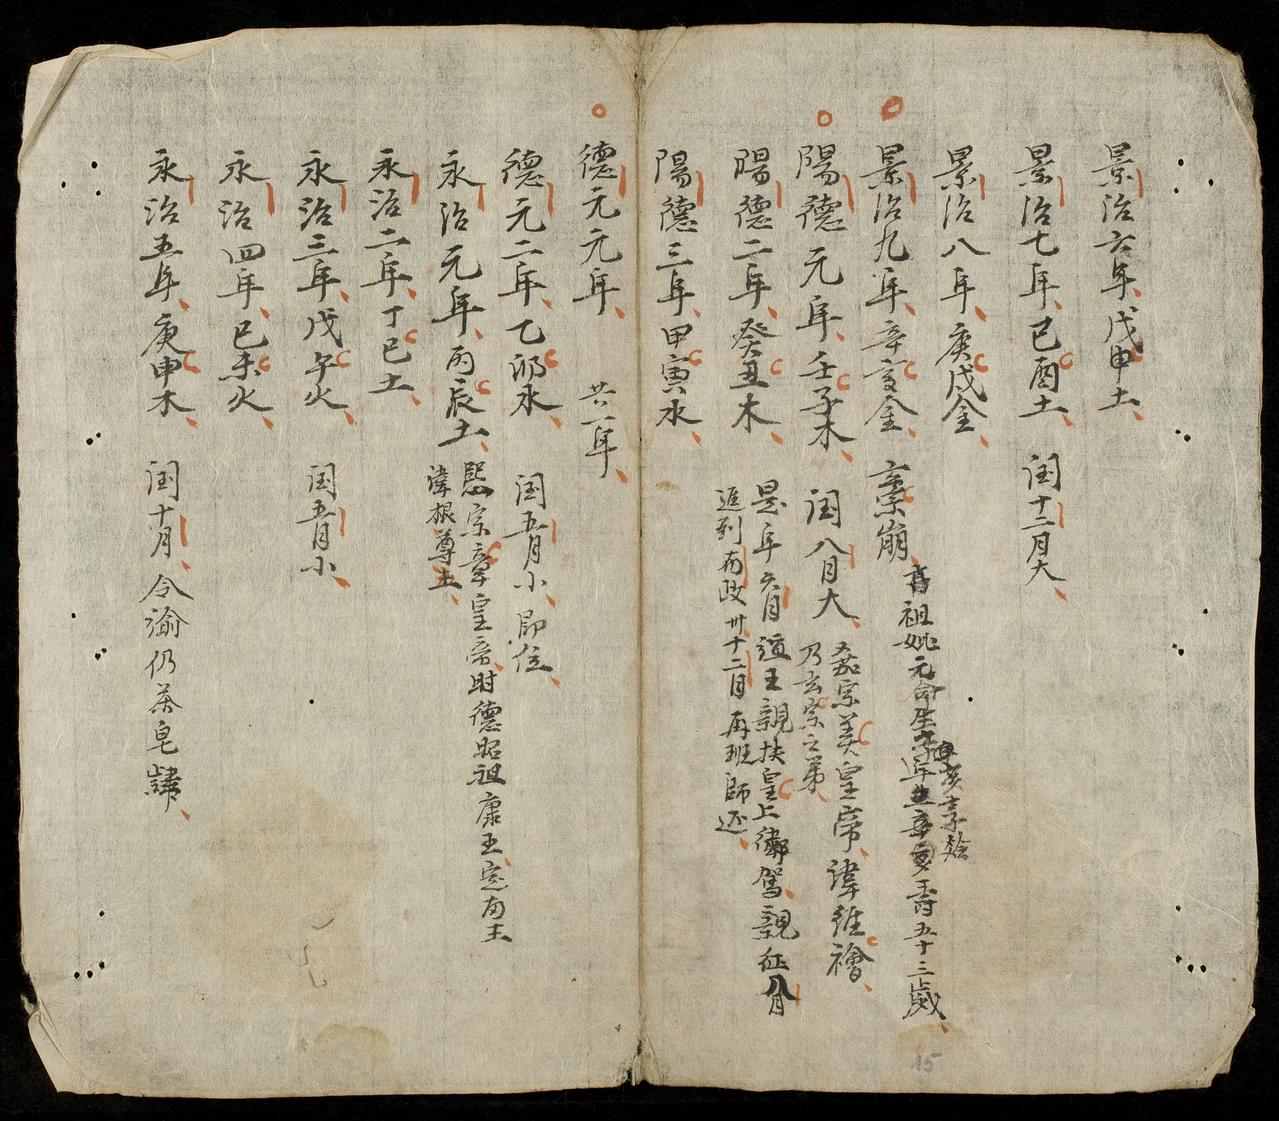 景治六年戊申土
景治七年己酉土 閏十二月大
景治八年庚戌金
景治九年辛亥金 棄崩
高祖妣元命生 年 辛亥壽五十三歲
陽德元年壬子木 閏八月大
嘉宗美皇帝諱維禬
乃玄宗之弟
陽德二年癸丑木
是年六月 王親扶皇上御駕親征八月
進到南政 卅十二月再班師还
陽德三年甲寅水
德元元年 廿一年
德元二年乙卯水 閏五月小 即位
永治元年丙辰土
熙宗章皇帝時德昭祖康王定南王
諱根尊土
永治二年丁巳土
永治三年戊午火 閏五月小
永治四年己未火
永治五年庚申木 閏十月 令諭仍茶皂
15